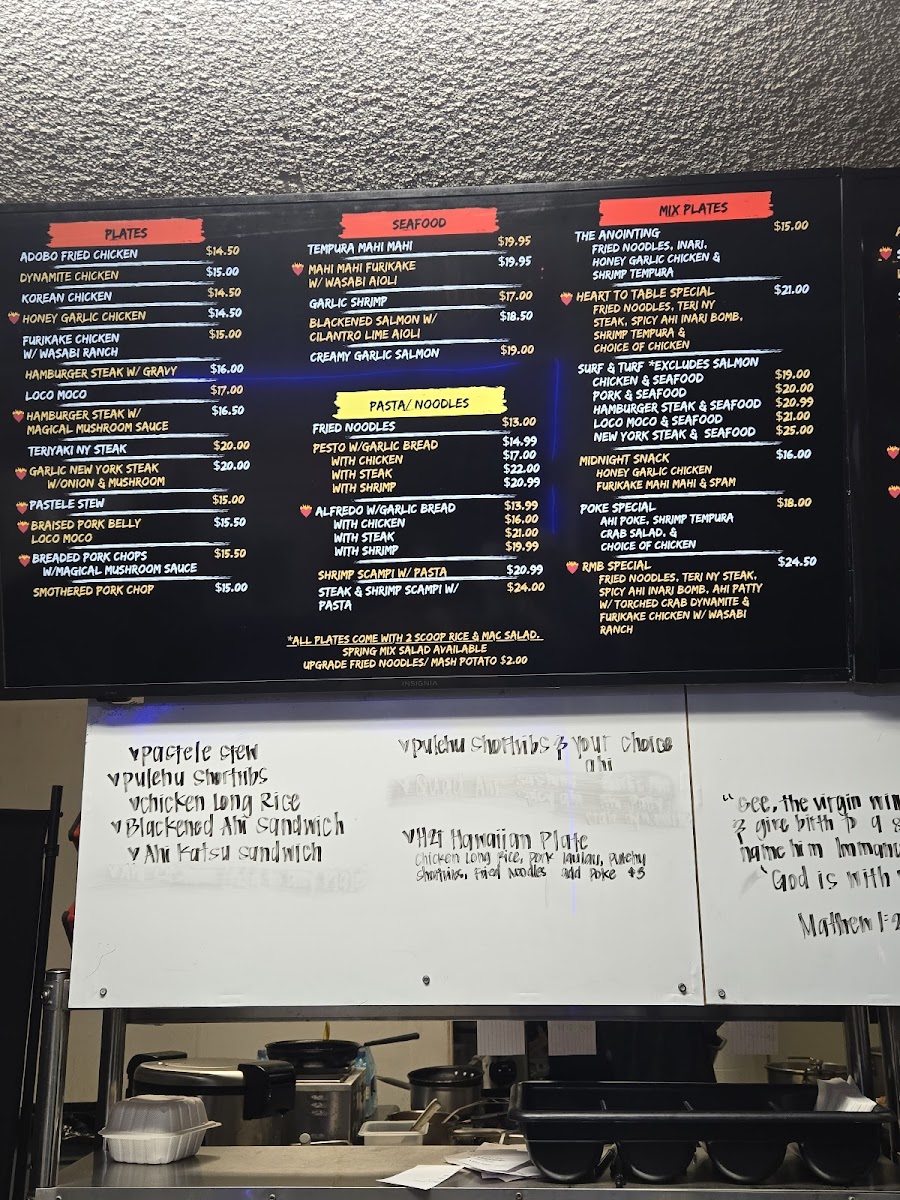 PLATES
ADOBO FRIED CHICKEN $14.50
DYNAMITE CHICKEN $15.00
KOREAN CHICKEN $14.50
HONEY GARLIC CHICKEN $14.50
FURIKAKE CHICKEN $15.00
W/ WASABI RANCH
HAMBURGER STEAK W/ GRAVY $16.00
LOCO MOCO $17.00
HAMBURGER STEAK W/ $16.50
MAGICAL MUSHROOM SAUCE
TERIYAKI NY STEAK $20.00
GARLIC NEW YORK STEAK $20.00
W/ONION & MUSHROOM
PASTELE STEW $15.00
BRAISED PORK BELLY $15.50
LOCO MOCO
BREADED PORK CHOPS $15.50
W/MAGICAL MUSHROOM SAUCE
SMOTHERED PORK CHOP $15.00
SEAFOOD
TEMPURA MAHI MAHI $19.95
MAHI MAHI FURIKAKE $19.95
W/ WASABI AIOLI
GARLIC SHRIMP $17.00
BLACKENED SALMON W/ $18.50
CILANTRO LIME AIOLI
CREAMY GARLIC SALMON $19.00
PASTA/ NOODLES
FRIED NOODLES $13.00
PESTO W/GARLIC BREAD $14.99
WITH CHICKEN $17.00
WITH STEAK $22.00
WITH SHRIMP $20.99
ALFREDO W/GARLIC BREAD $13.99
WITH CHICKEN $16.00
WITH STEAK $21.00
WITH SHRIMP $19.99
SHRIMP SCAMPI W/ PASTA $20.99
STEAK & SHRIMP SCAMPI W/ $24.00
PASTA
*ALL PLATES COME WITH 2 SCOOP RICE & MAC SALAD.
SPRING MIX SALAD AVAILABLE
UPGRADE FRIED NOODLES/ MASH POTATO $2.00
MIX PLATES
THE ANOINTING $15.00
FRIED NOODLES, INARI,
HONEY GARLIC CHICKEN &
SHRIMP TEMPURA
HEART TO TABLE SPECIAL $21.00
FRIED NOODLES, TERI NY
STEAK, SPICY AHI INARI BOMB,
SHRIMP TEMPURA &
CHOICE OF CHICKEN
SURF & TURF *EXCLUDES SALMON
CHICKEN & SEAFOOD $19.00
PORK & SEAFOOD $20.00
HAMBURGER STEAK & SEAFOOD $20.99
LOCO MOCO & SEAFOOD $21.00
NEW YORK STEAK & SEAFOOD $25.00
MIDNIGHT SNACK $16.00
HONEY GARLIC CHICKEN
FURIKAKE MAHI MAHI & SPAM
POKE SPECIAL $18.00
AHI POKE, SHRIMP TEMPURA
CRAB SALAD, &
CHOICE OF CHICKEN
RMB SPECIAL $24.50
FRIED NOODLES, TERI NY STEAK,
SPICY AHI INARI BOMB, AHI PATTY
W/ TORCHED CRAB DYNAMITE &
FURIKAKE CHICKEN W/ WASABI
RANCH
INSIGNIA
pastele stew
pulehu shortribs
chicken Long Rice
Blackened Ahi sandwich
Ahi Katsu sandwich
pulehu shortribs & your choice
ahi
H2T Hawaiian Plate
chicken Long Rice, pork laulau, pulehu
shortribs, Fried Noodles add poke $5
"see, the virgin
& give birth to a
name him
"God is with
Matthew 1:2